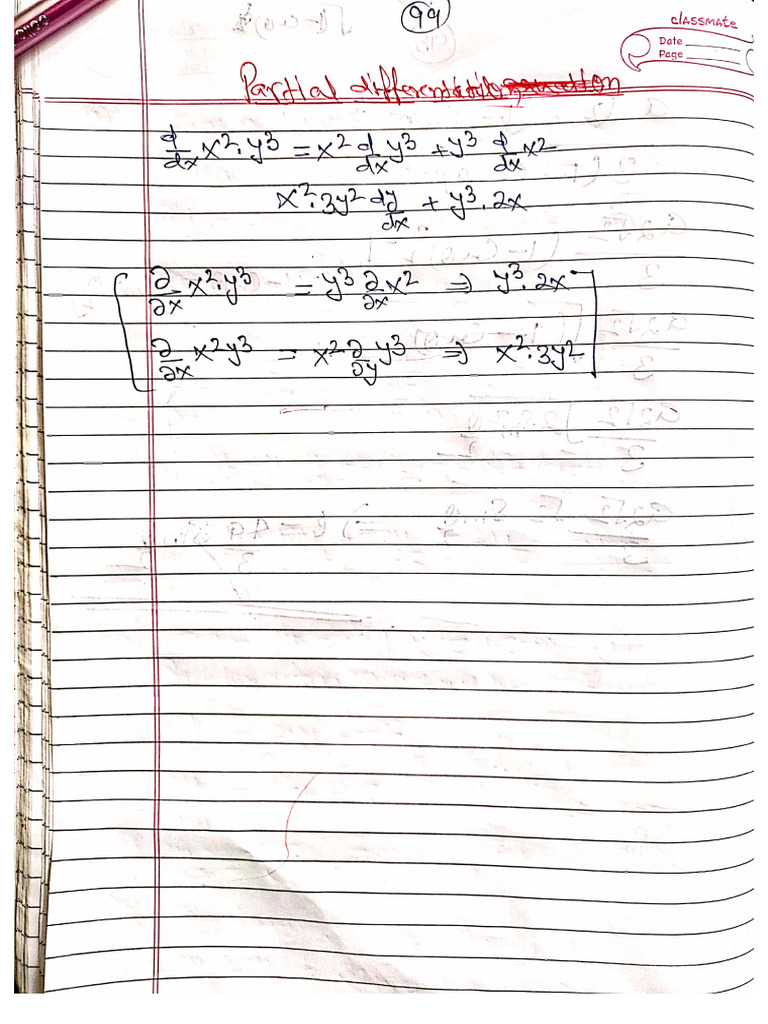 99
classmate
Date
Page
Partial differentiation
d/dx x²·y³ = x² d/dx y³ + y³ d/dx x²
x²·3y² dy/dx + y³·2x
∂/∂x x²·y³ = y³ ∂/∂x x² ⇒ y³·2x
∂/∂x x²y³ = x² ∂/∂y y³ ⇒ x²·3y²